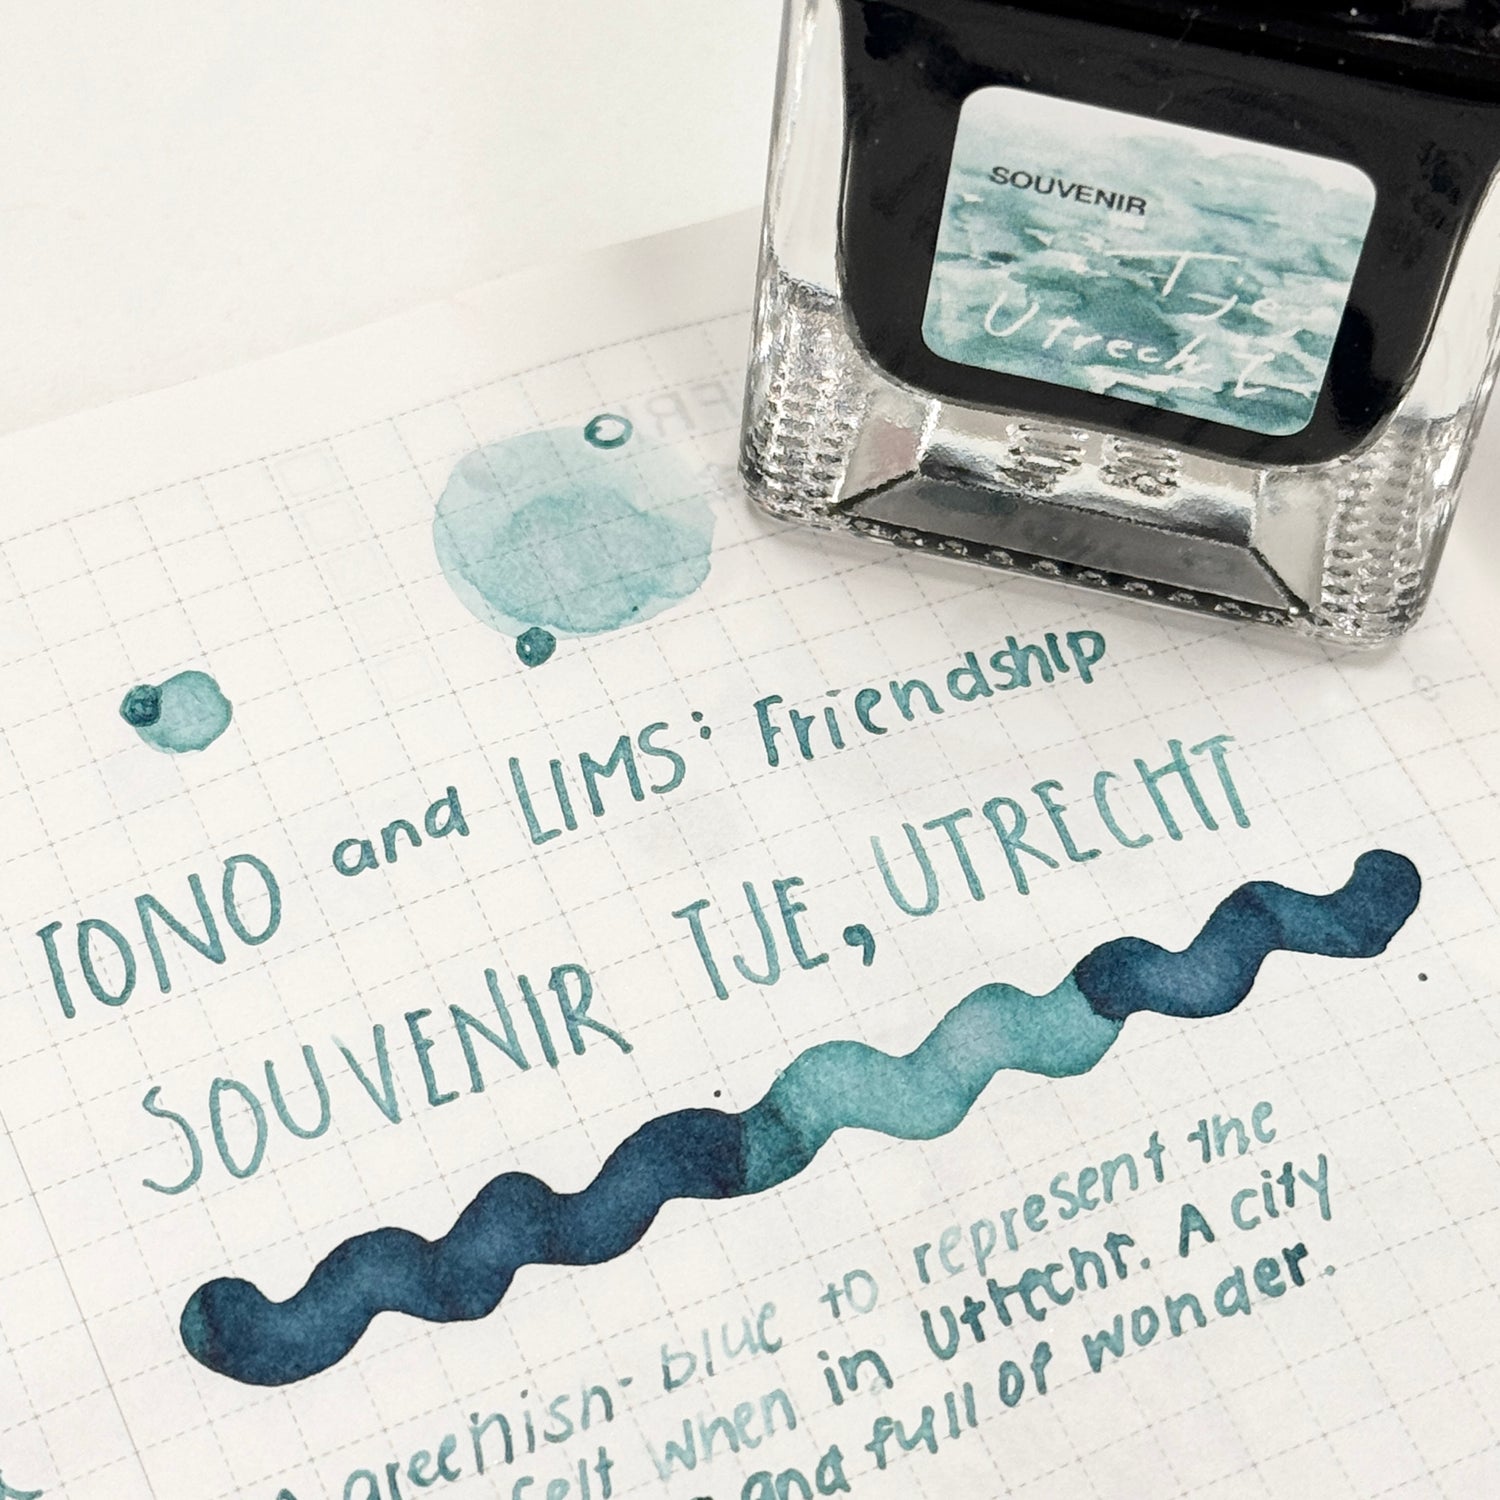 SOUVENIR
Tje,
Utrecht
TONO and LIMS: Friendship
SOUVENIR TJE, UTRECHT
A greenish-blue to represent the
felt when in Utrecht. A city
and full of wonder.